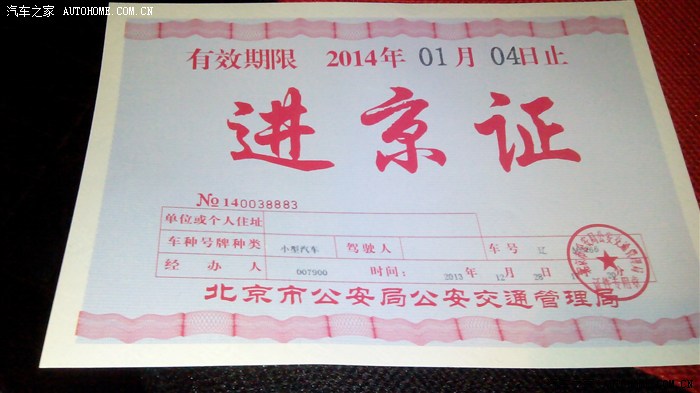 汽车之家 AUTOHOME.COM.CN
有效期限 2014年 01月 04日止
进京证
No 140038883
单位或个人住址
车种号牌种类 小型汽车 驾驶人 车号 辽
经办人 007900 时间: 2013年 12月 28日
北京市公安局公安交通管理局